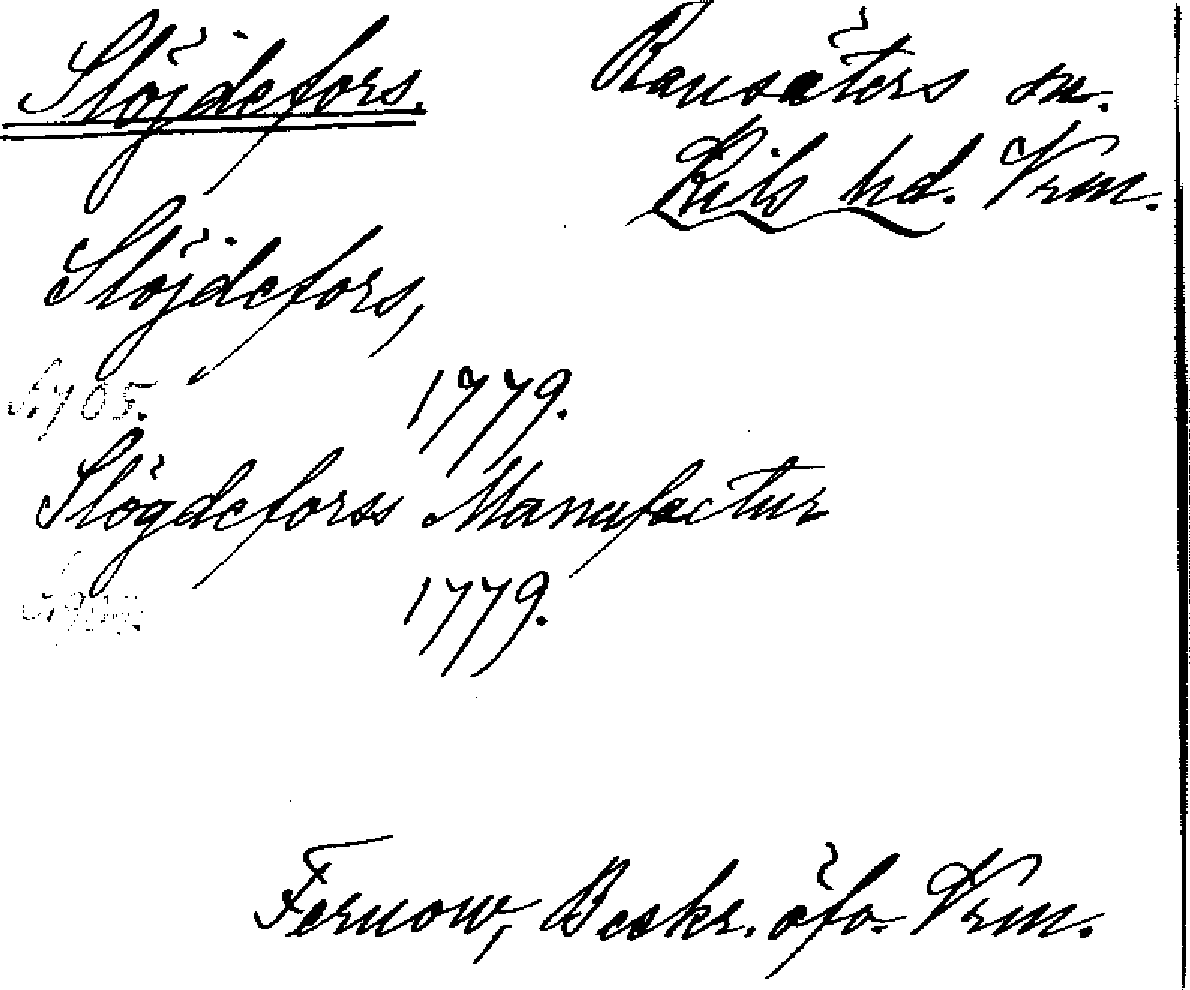 Slöjdefors.
Ransäters sn.
Kils hd. Vrm.
Slöjdefors,
s. 705. 1779.
Slögdeforss Manufactur
1779.
Fernow, Beskr. öfv. Vrm.